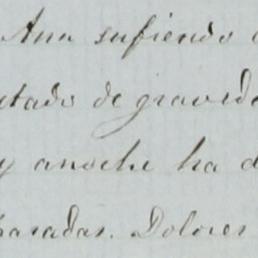 Ana sufiendo
stado de graveda
y anoche ha d
paradas. Dolores